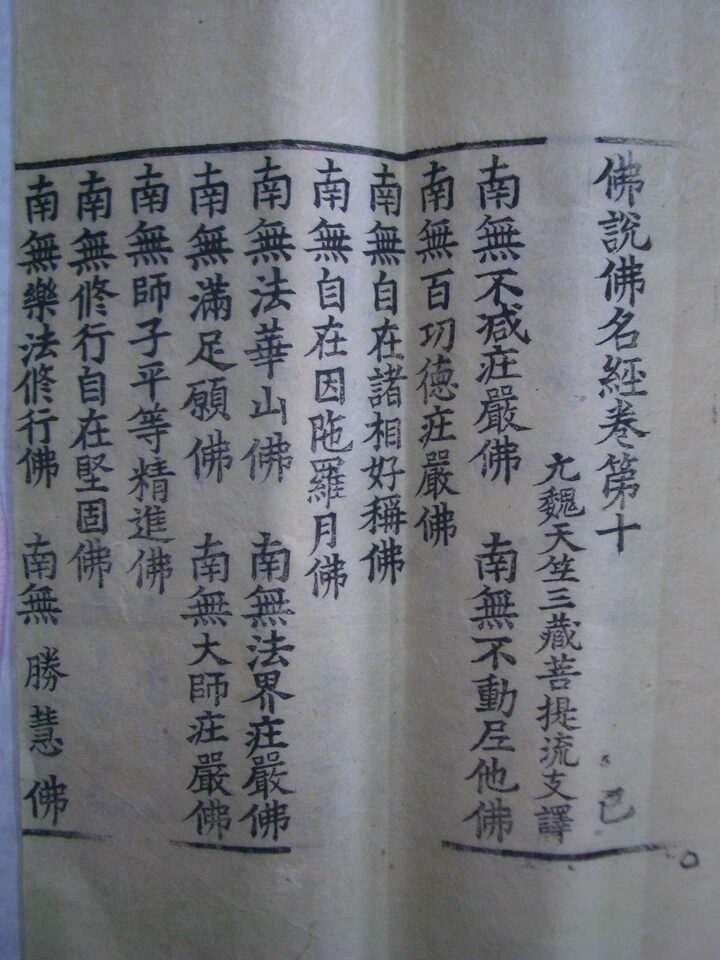 佛說佛名經卷第十 己
元魏天竺三藏菩提流支譯
南無不減庄嚴佛 南無不動尼他佛
南無百㓛德庄嚴佛
南無自在諸相好稱佛
南無自在因陁羅月佛
南無法華山佛 南無法界庄嚴佛
南無滿足願佛 南無大師庄嚴佛
南無師子平等精進佛
南無修行自在堅固佛
南無樂法修行佛 南無勝慧佛